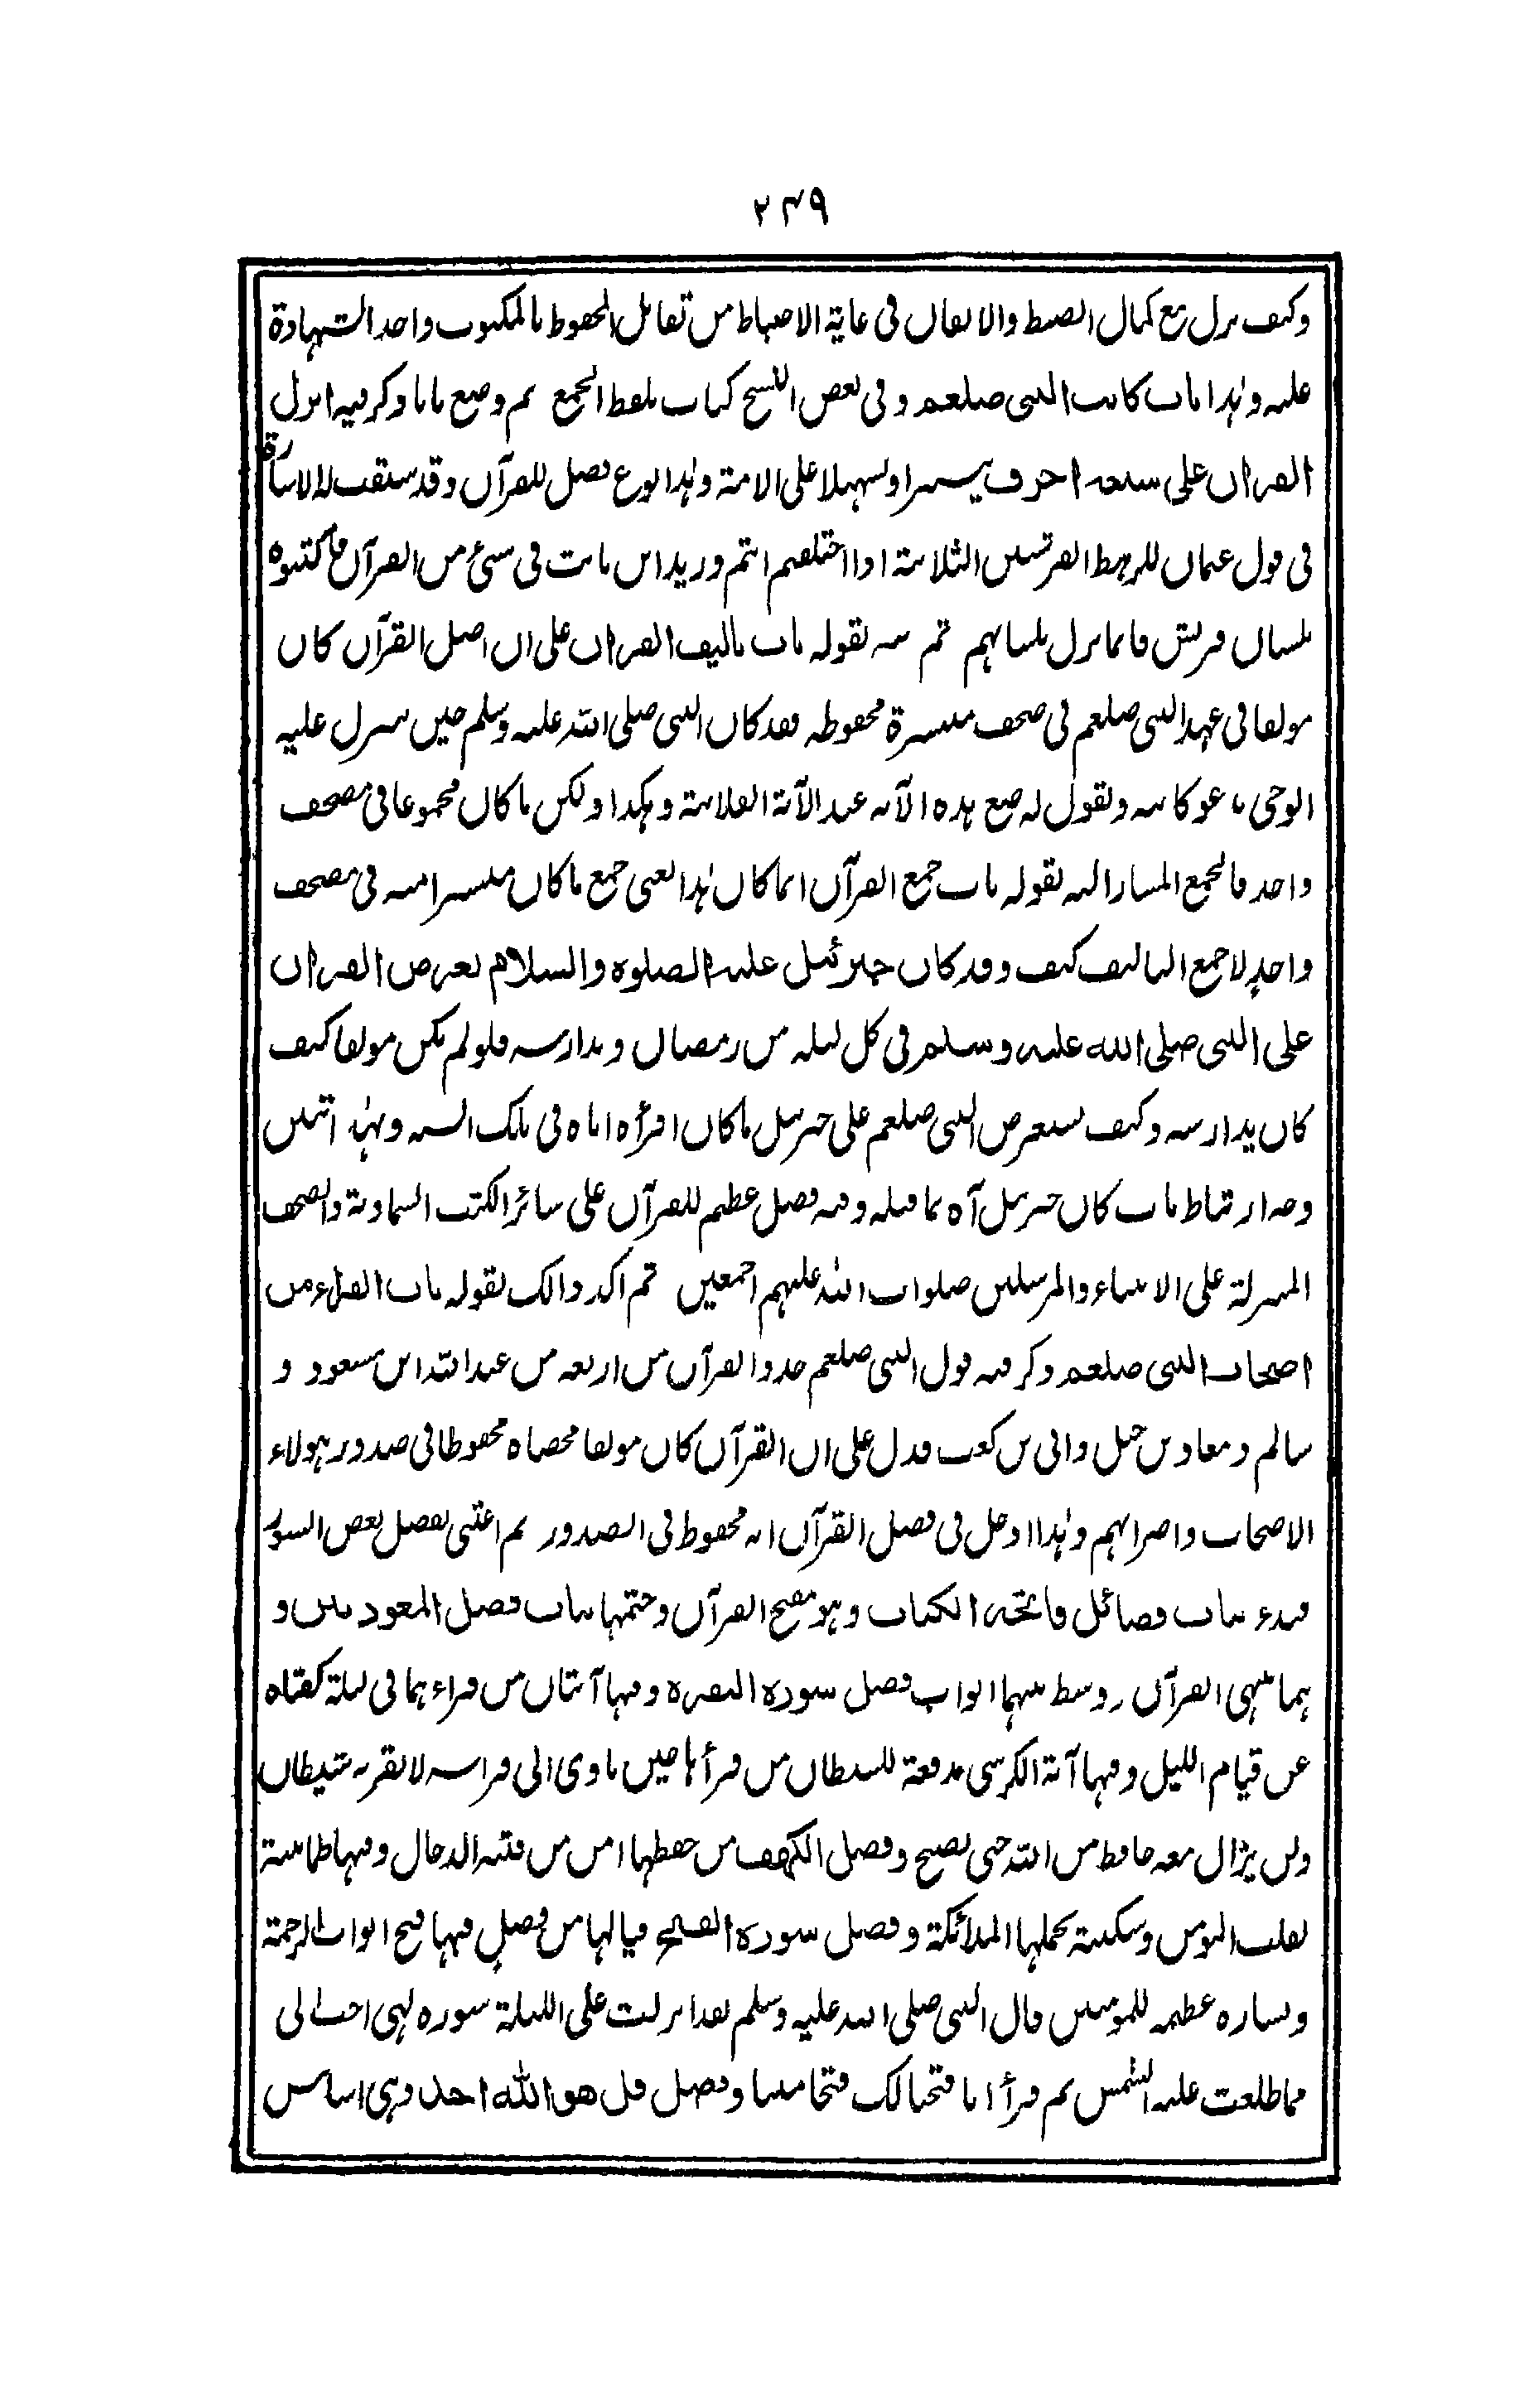 ٢٣٩
وكيف نزل مع كمال الضبط والاتقان فى غاية الاحتياط من تقابل المحفوظ بالمكتوب واخد الشهادة
عليه وهذا باب كاتب النبى صلعم وفى بعض النسخ كتاب بلفظ الجمع ثم وضع بابا وذكر فيه انزل
القرآن على سبعة احرف تيسيرا وتسهيلا على الامة وهذا نوع فضل للقرآن وقد سبقت له الاشارة
فى قول عثمان للرهط القرشيين الثلاثة اذا اختلفتم انتم وزيد بن ثابت فى شئ من القرآن فاكتبوه
بلسان قريش فانما نزل بلسانهم ثم نبه بقوله باب تاليف القرآن على ان اصل القرآن كان
مولفا فى عهد النبى صلعم فى صحف منتشرة محفوظه فقد كان النبى صلى الله عليه وسلم حين ينزل عليه
الوحى يدعو كاتبه ويقول له ضع هذه الآية عند الآية الفلانية وهكذا ولكن ما كان مجموعا فى مصحف
واحد فالجمع المشار اليه بقوله باب جمع القرآن انما كان هذا يعنى جمع ما كان منتشرا منه فى مصحف
واحد لا جمع التاليف كيف وقد كان جبرئيل عليه الصلوة والسلام يعرض القرآن
على النبى صلى الله عليه وسلم فى كل ليلة من رمضان ويدارسه فلو لم يكن مولفا كيف
كان يدارسه وكيف يستعرض النبى صلعم على جبريل ما كان اقرأه اياه فى تلك السنه وبهذا تبين
وجه ارتباط باب كان جبريل آه بما قبله وفيه فضل عظيم للقرآن على سائر الكتب السماوية والصحف
المنزلة على الانبياء والمرسلين صلوات الله عليهم اجمعين ثم اكد ذالك بقوله باب القراء من
اصحاب النبى صلعم وذكر فيه قول النبى صلعم خذوا القرآن من اربعه من عبد الله ابن مسعود و
سالم ومعاذ بن جبل وابى بن كعب فدل على ان القرآن كان مولفا محصاه محفوظا فى صدور هولاء
الاصحاب واضرابهم وهذا ادخل فى فضل القرآن انه محفوظ فى الصدور ثم اعتنى بفضل بعض السور
فبدء بباب فضائل فاتحة الكتاب وهو مفتح القرآن وختمها بباب فضل المعوذتين و
هما منتهى القرآن ووسط بينهما ابواب فضل سورة البقره وفيها آيتان من قراءهما فى ليلة كفتاه
عن قيام الليل وفيها آية الكرسى مدفعة للشيطان من قرأها حين ياوى الى فراشه لا يقربه شيطان
ولن يزال معه حافظ من الله حتى يصبح وفضل الكهف من حفظها امن من فتنه الدجال وفيها طمانينة
لقلب المومن وسكينة تحملها الملائكة وفضل سورة الفتح فيا لها من فضل فيها فتح ابواب الرحمة
وبشاره عظيمه للمومنين قال النبى صلى الله عليه وسلم لقد انزلت على الليلة سورة لهى احب الى
مما طلعت عليه الشمس ثم قرأ انا فتحنا لك فتحا مبينا وفضل قل هو الله احد وهى اساس